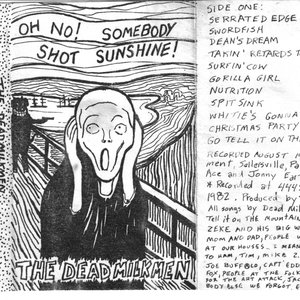 OH NO! SOMEBODY
SHOT SUNSHINE!
THE DEAD MILKMEN
SIDE ONE:
SERRATED EDGE
SWORDFISH
DEAN'S DREAM
TAKIN' RETARDS T
SURFIN' COW
GORILLA GIRL
NUTRITION
SPIT SINK
WHITIE'S GONNA
CHRISTMAS PARTY
GO TELL IT ON TH
RECORDED AUGUST
ment, Sellersville, Pa
Ace and Jonny Ear
* Recorded at 444
1982. Produced by
All songs by Dead Mil
Tell it on the Mountain
ZEKE AND HIS BIG
MOM AND DAD, PEOPLE
AT OUR HOUSES. I MEAN
TO HAM, TIM, MIKE Z.
JOE BUFFALO, CAPT EDD
FOX, PEOPLE AT THE FOLK
FOR THE ART ATTACK,
BODY ELSE WE FORGOT